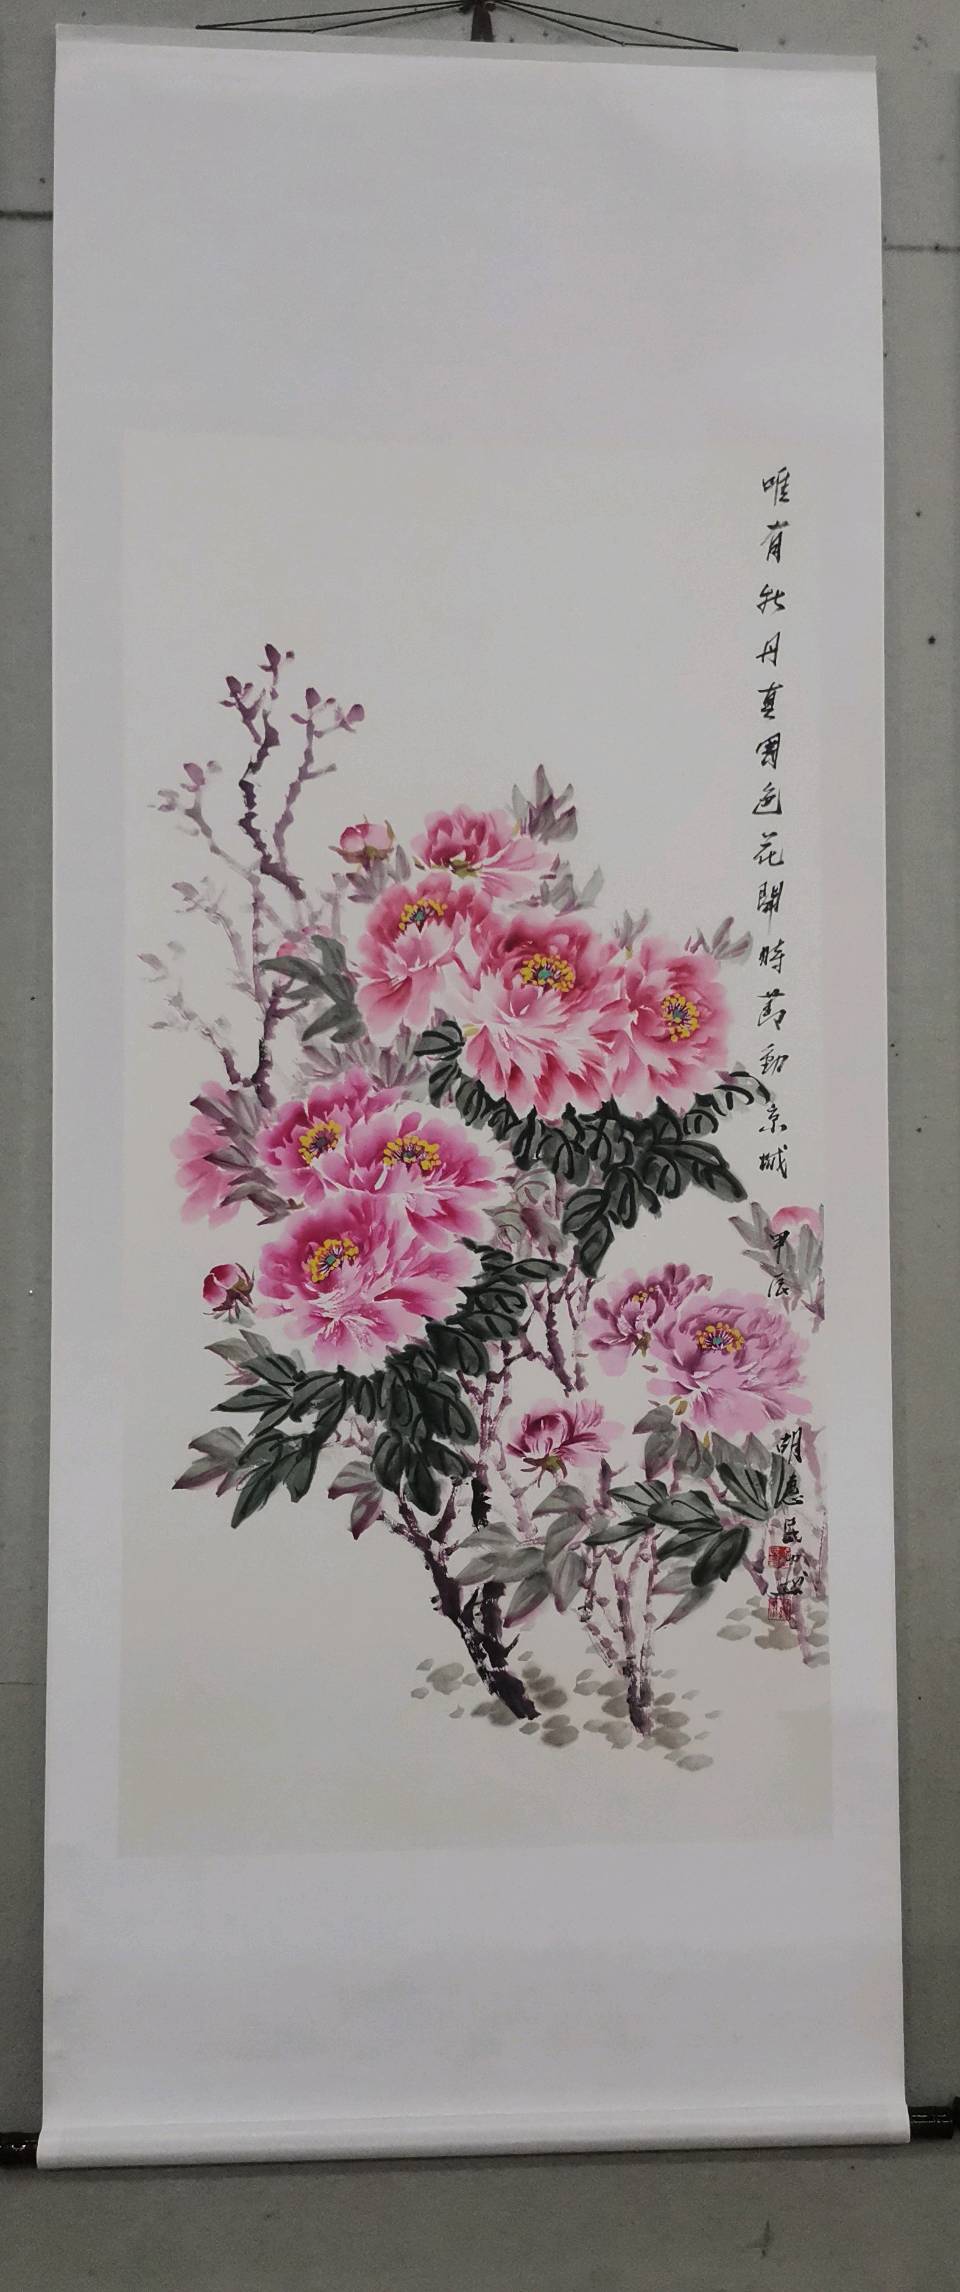 唯有牡丹真國色花開時節動京城
甲辰
胡應民